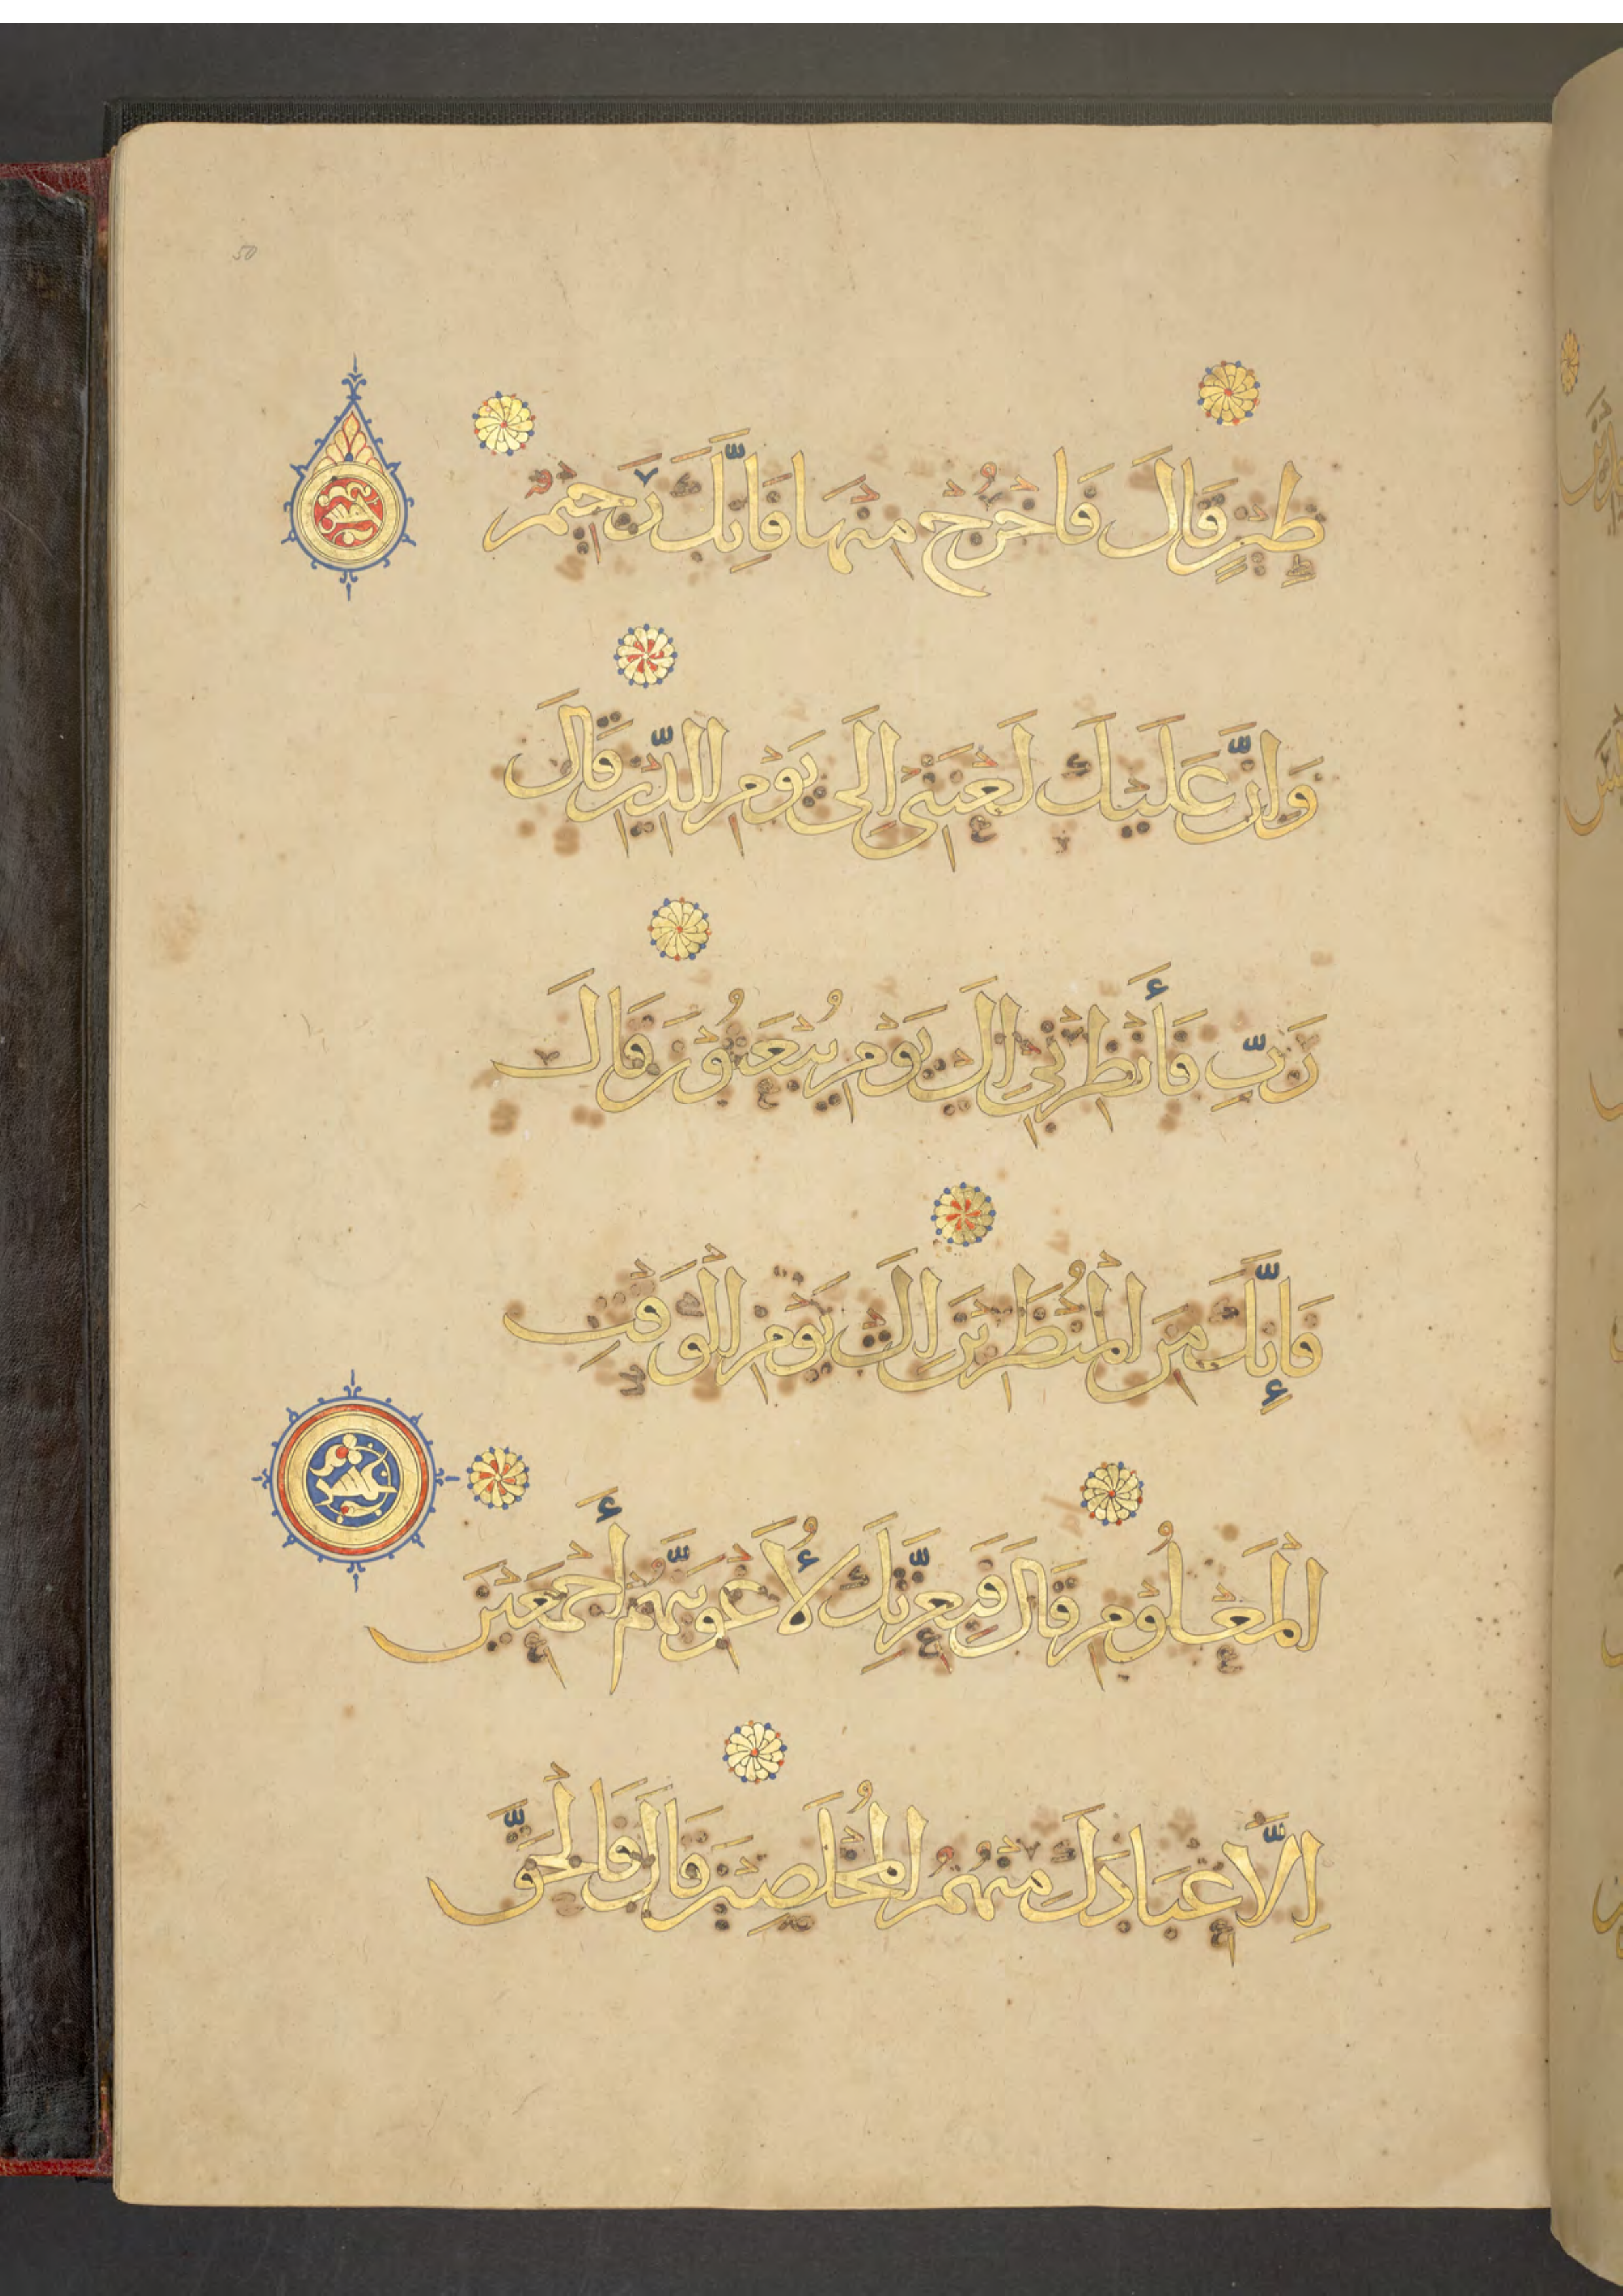 50
طِينٍ قَالَ فَاخْرُجْ مِنْهَا فَاِنَّكَ رَجِيمٌ
وَاِنَّ عَلَيْكَ لَعْنَتِى اِلَى يَوْمِ الدِّينِ قَالَ
رَبِّ فَأَنْظِرْنِى اِلَى يَوْمِ يُبْعَثُوْنَ قَالَ
فَإِنَّكَ مِنَ الْمُنْظَرِينَ اِلَى يَوْمِ الْوَقْتِ
الْمَعْلُوْمِ قَالَ فَبِعِزَّتِكَ لَأُغْوِيَنَّهُمْ أَجْمَعِيْنَ
اِلَّا عِبَادَكَ مِنْهُمُ الْمُخْلَصِيْنَ قَالَ فَالْحَقَّ